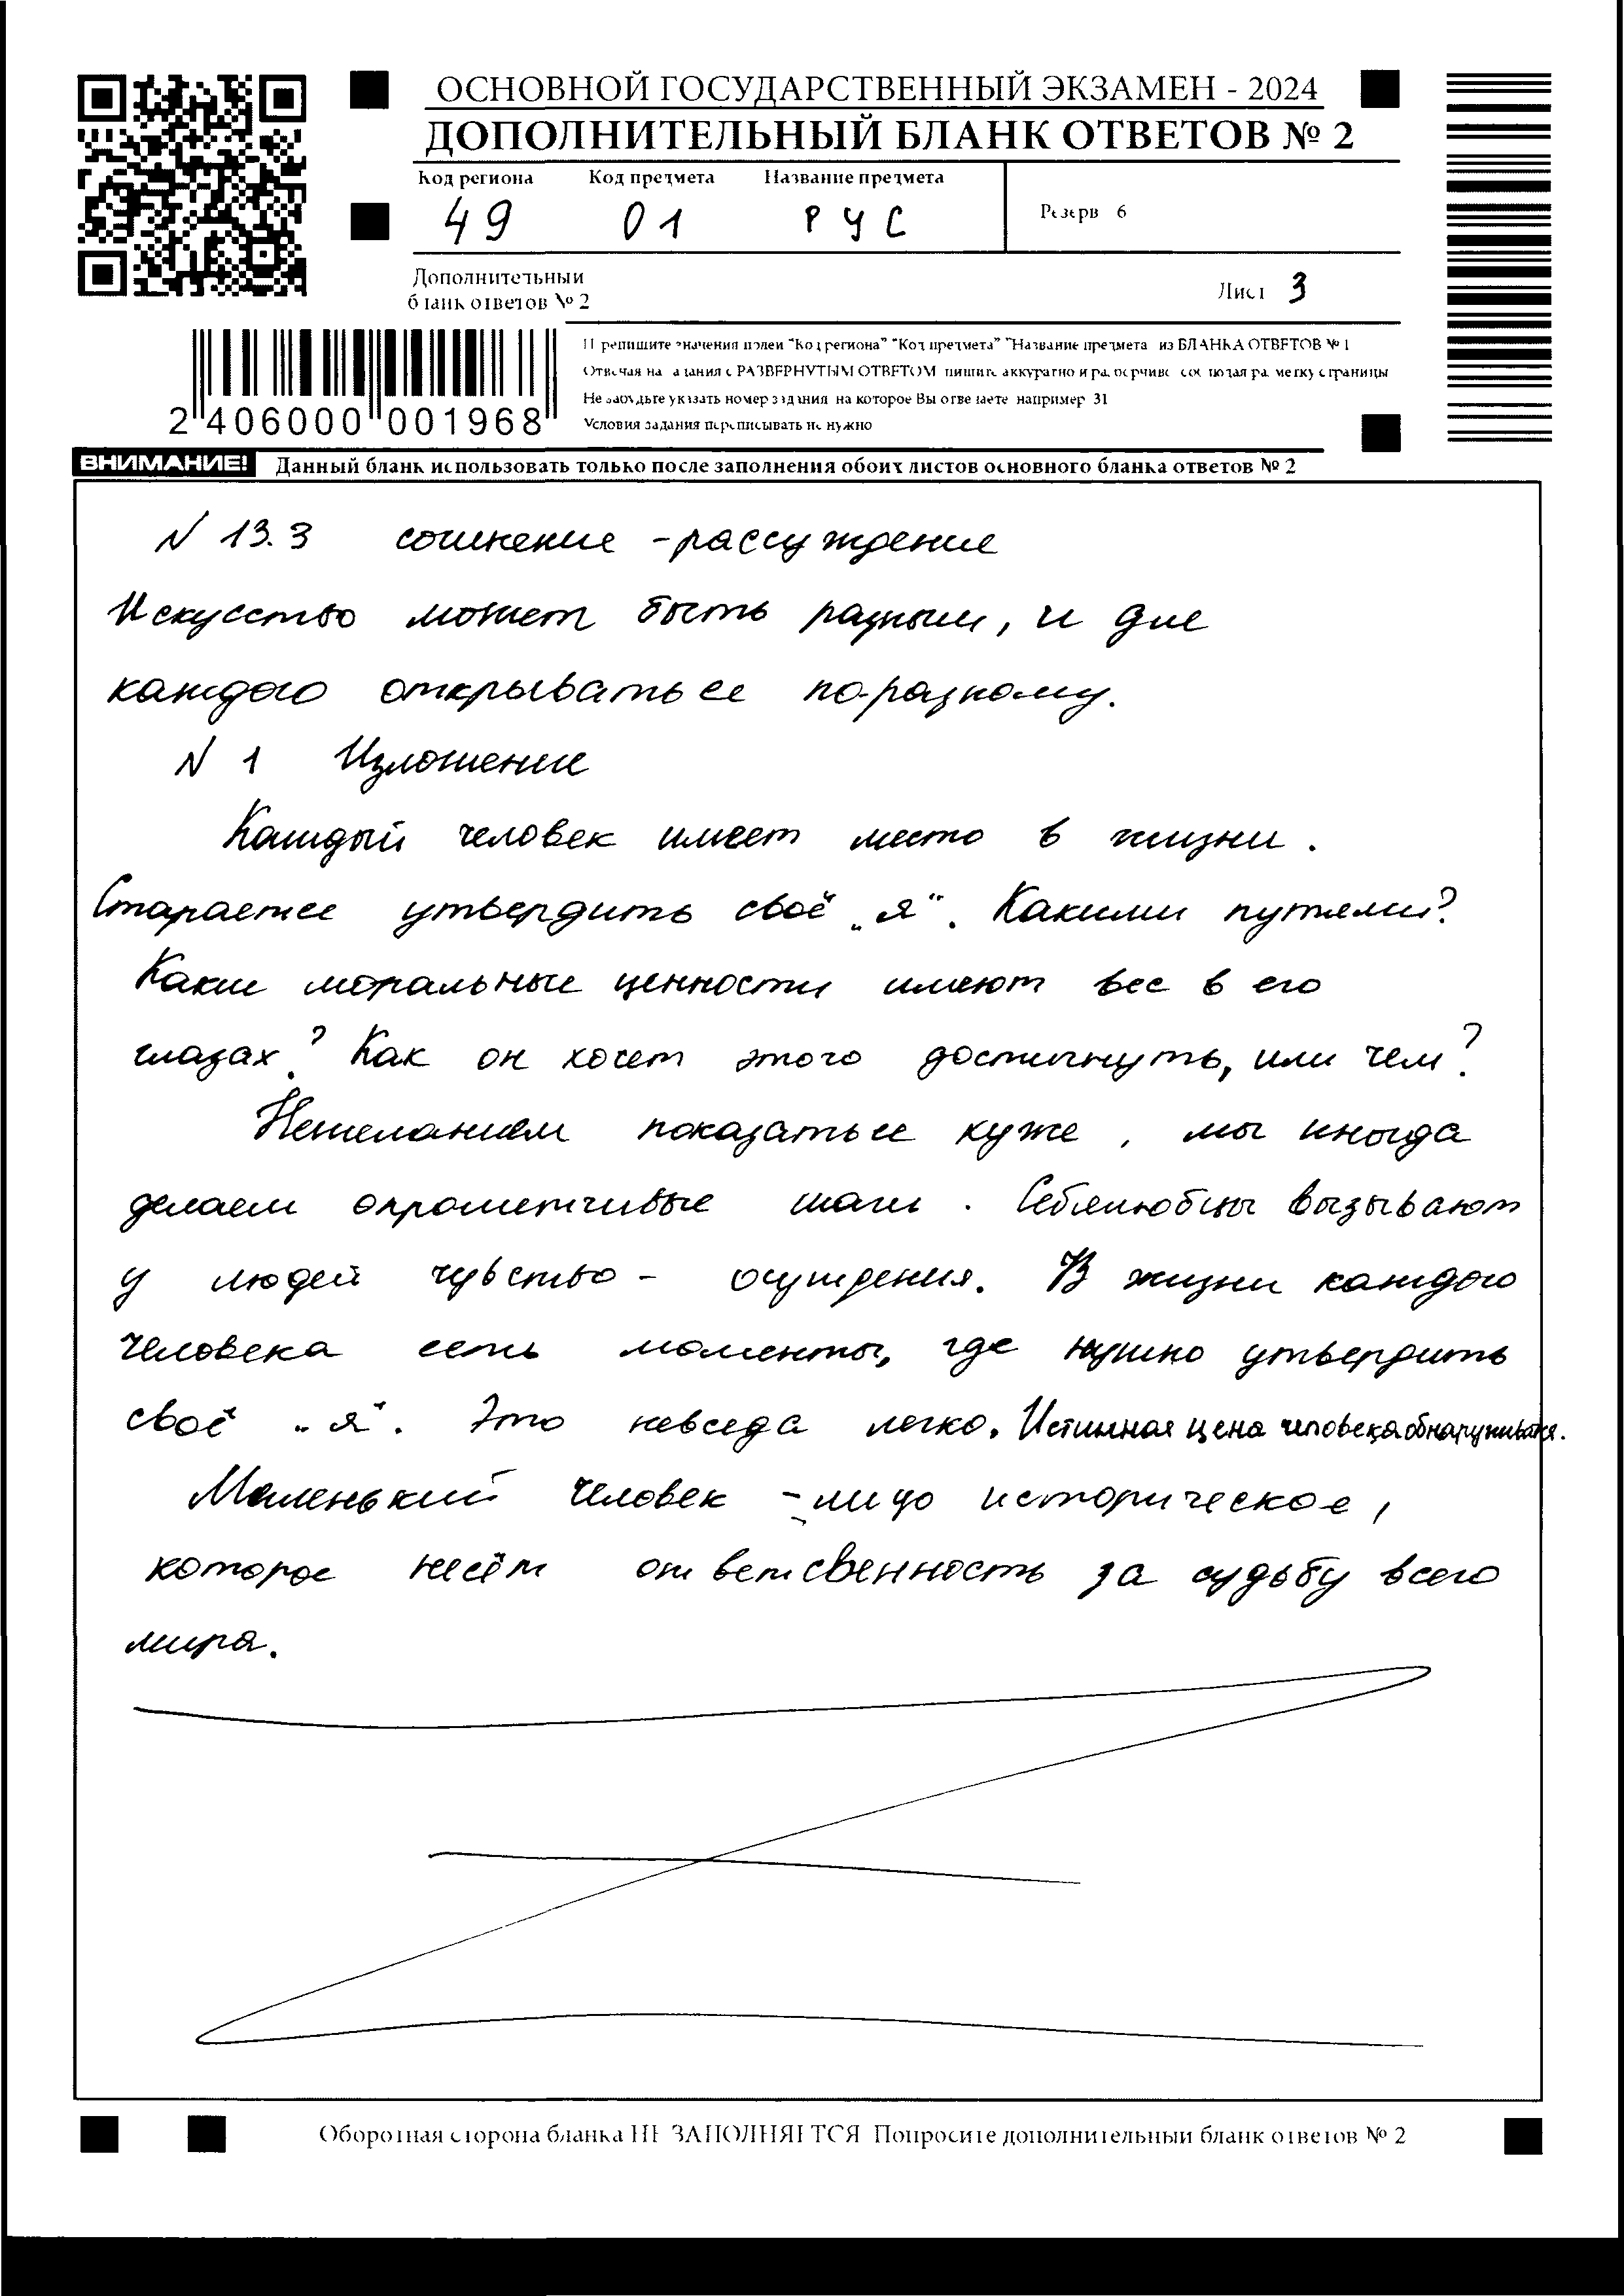 ОСНОВНОЙ ГОСУДАРСТВЕННЫЙ ЭКЗАМЕН - 2024
ДОПОЛНИТЕЛЬНЫЙ БЛАНК ОТВЕТОВ № 2
Код региона Код предмета Название предмета
49 01 РУС
Резерв 6
Дополнительный
бланк ответов № 2
Лист 3
Перепишите значения полей "Код региона" "Код предмета" "Название предмета из БЛАНКА ОТВЕТОВ № 1
Отвечая на задания с РАЗВЕРНУТЫМ ОТВЕТОМ пишите аккуратно и разборчиво соблюдая разметку страницы
Не забудьте указать номер задания на которое Вы отвечаете например 31
Условия задания переписывать не нужно
2 406000 001968
ВНИМАНИЕ! Данный бланк использовать только после заполнения обоих листов основного бланка ответов № 2
N 13.3 сочинение -рассуждение
Искусство может быть разным, и для
каждого открываться по-разному.
N 1 Изложение
Каждый человек имеет место в жизни.
Старается утвердить своё „я". Какими путями?
Какие моральные ценности имеют вес в его
глазах? Как он хочет этого достигнуть, или чем?
Нежеланием показаться хуже, мы иногда
делаем опрометчивые шаги. Себялюбцы вызывают
у людей чувство - осуждения. В жизни каждого
человека есть моменты, где нужно утвердить
своё „я". Это невсегда легко. Истинная цена человека обнаруживатся.
Маленький человек - лицо историческое,
которое несёт ответсвенность за судьбу всего
мира.
Оборотная сторона бланка НЕ ЗАПОЛНЯЕТСЯ Попросите дополнительный бланк ответов № 2